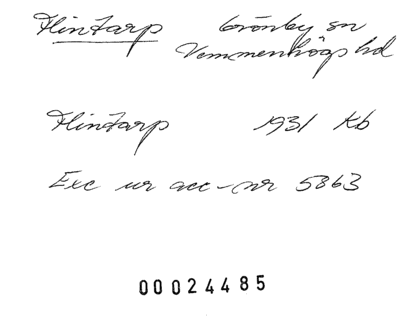 Flintarp Grönby sn
Vemmenhögs hd
Flintarp 1931 Kb
Exc ur acc-nr 5863
00024485